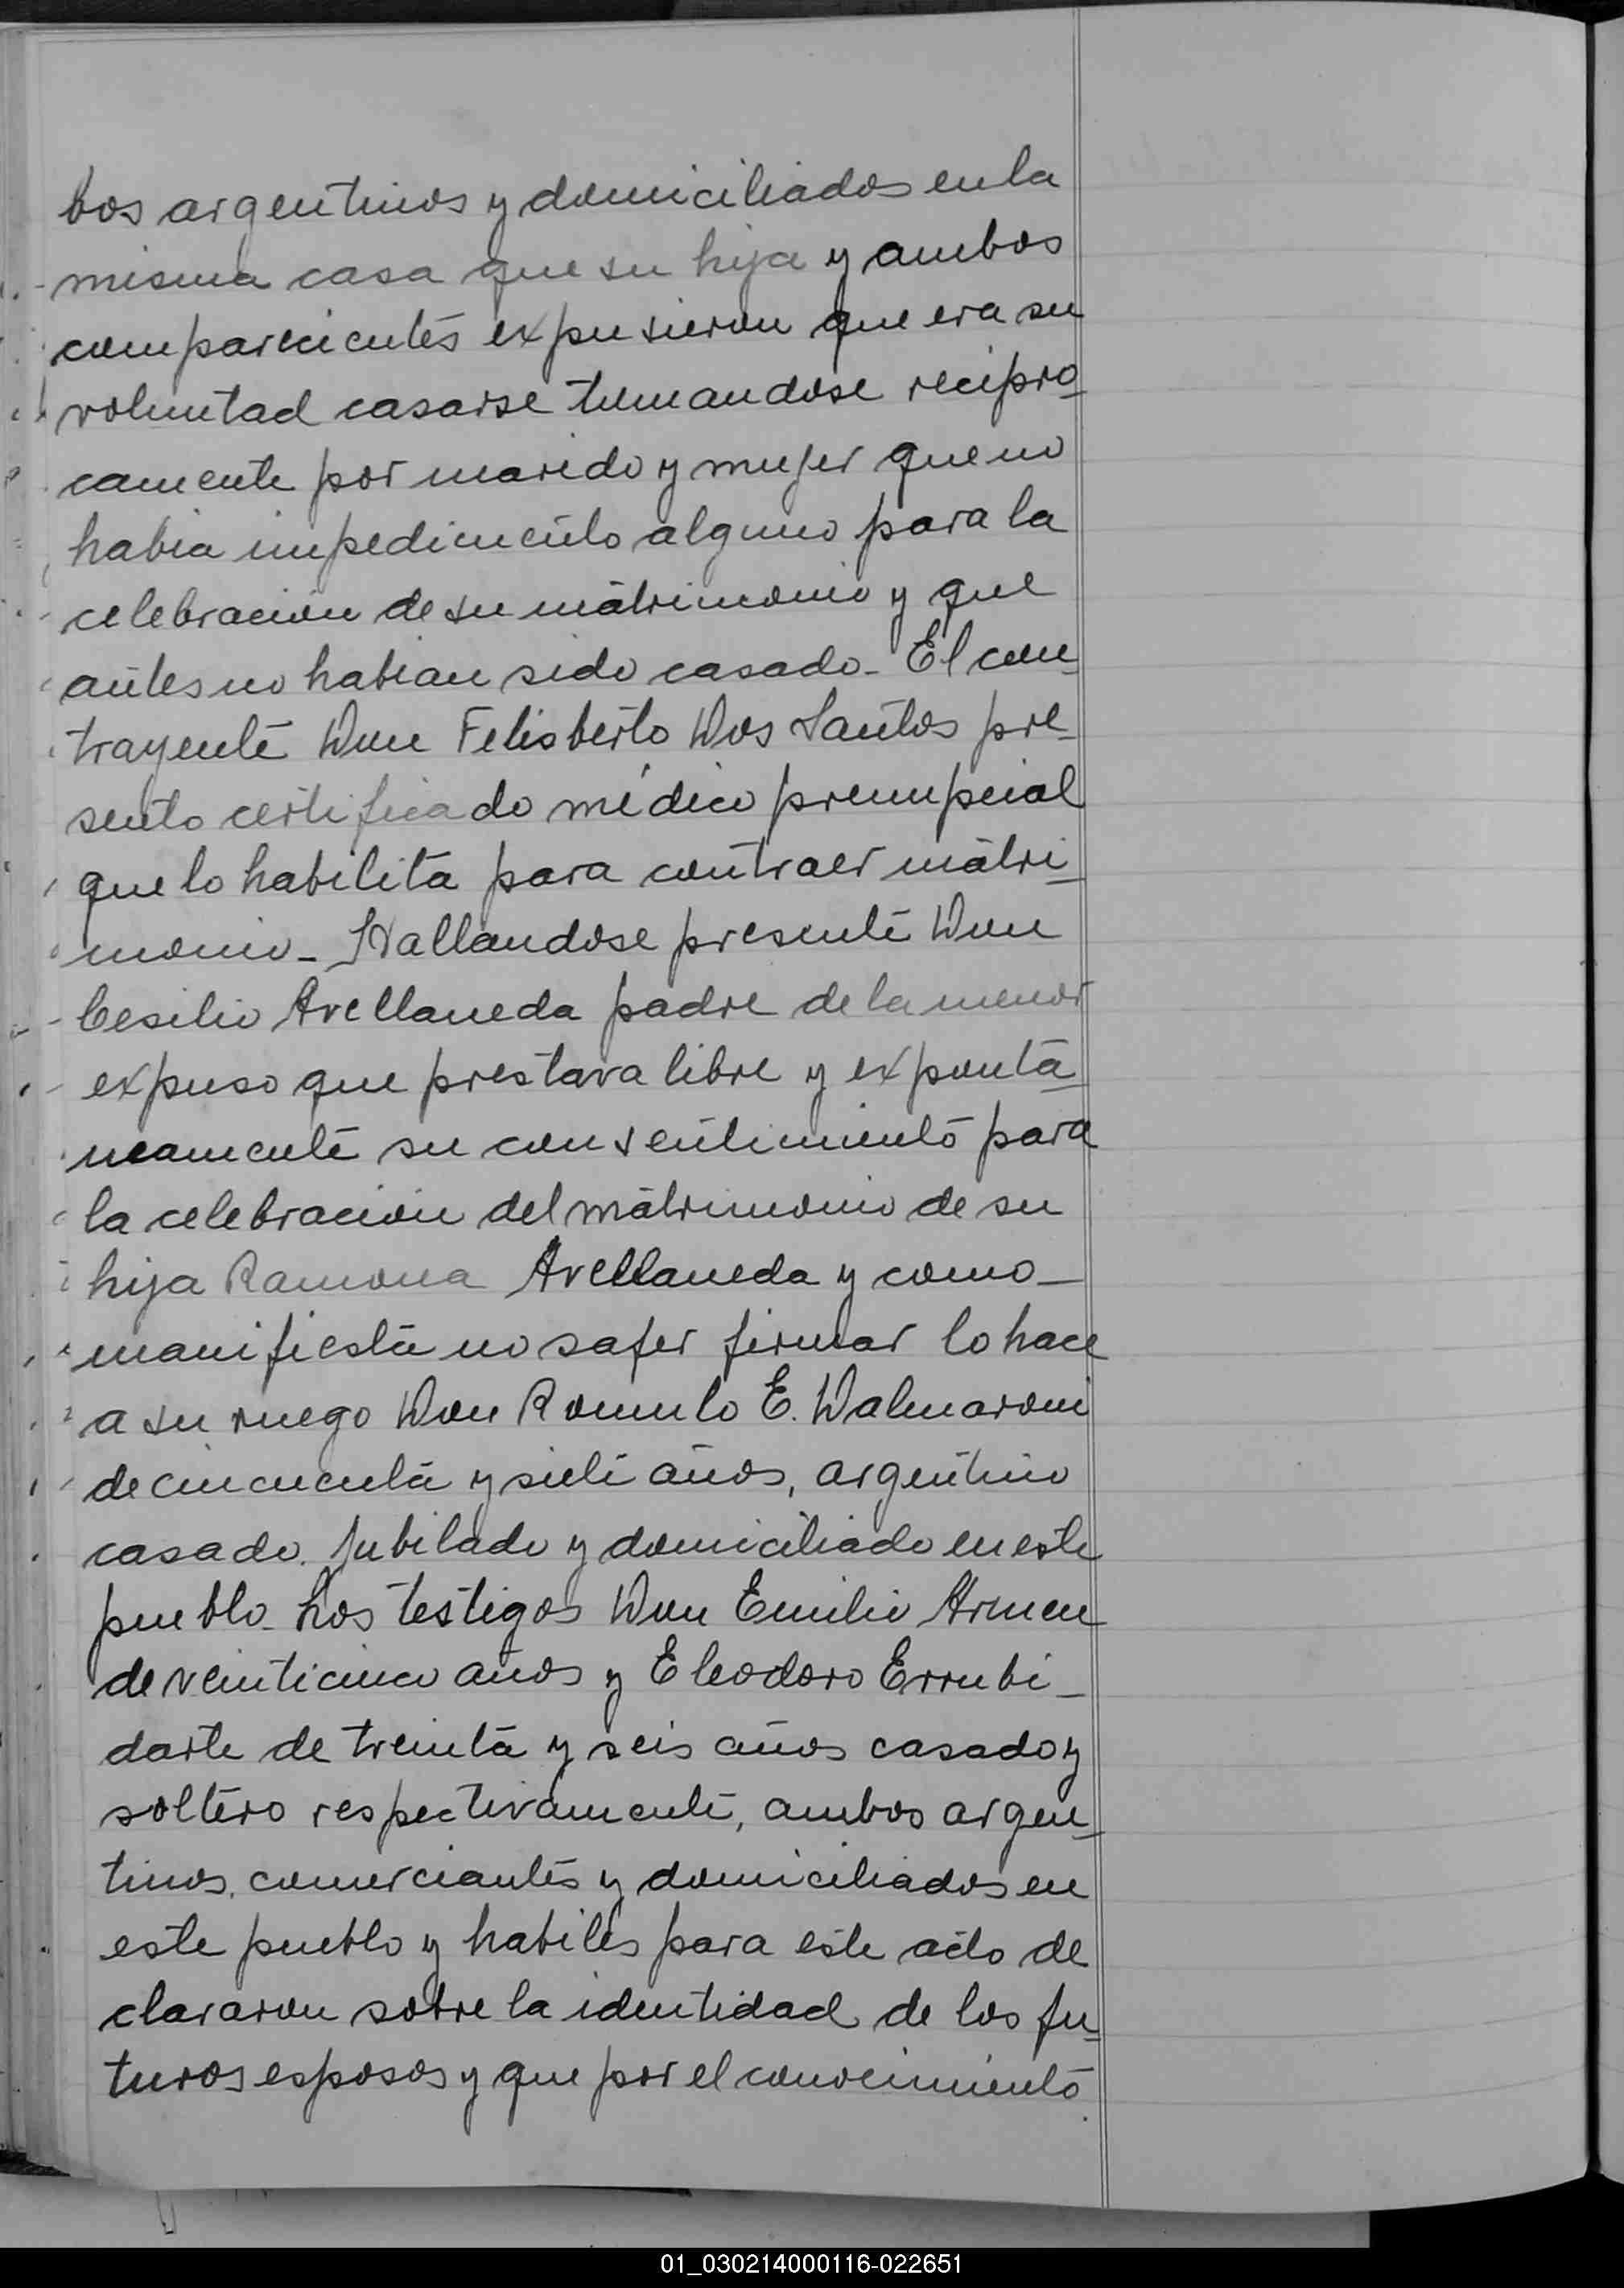 bos argentinos y domiciliados en la
misma casa que su hija y ambos
comparecientes expusieron que era su
voluntad casarse tomandose recipro
camente por marido y mujer que no
habia impedimento alguno para la
celebracion de su matrimonio y que
antes no habian sido casado_ El con
trayente Don Felisberto Dos Santos pre
sento certificado médico prenupcial
que lo habilita para contraer matri
monio_ Hallandose presente Don
Cesilio Avellaneda padre de la menor
expuso que prestava libre y exponta
neamente su consentimiento para
la celebracion del matrimonio de su
hija Ramona Avellaneda y como_
manifiesta no safer firmar lo hace
a su ruego Don Romulo E. Dalmaroni
de cincuenta y siete años, argentino
casado. Jubilado y domiciliado en este
pueblo_ Los testigos Don Emilio Armen
de veinticinco años y Eleodoro Errubi_
darte de treinta y seis años casado y
soltero respectivamente, ambos argen
tinos, comerciantes y domiciliados en
este pueblo y habiles para este acto de
clararon sobre la identidad de los fu
turos esposos y que por el conocimiento
01_030214000116-022651